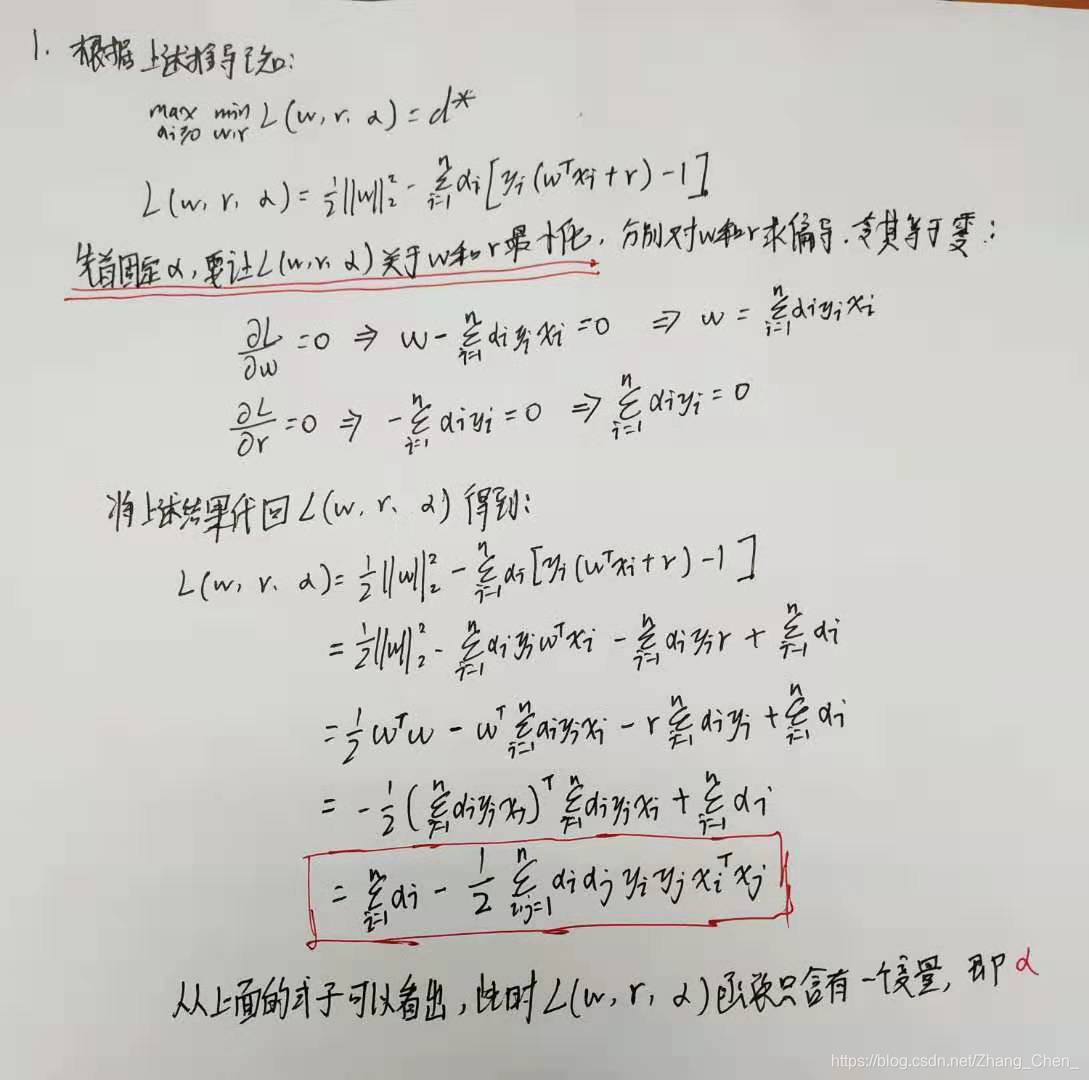 1. 根据上述推导已知:
max min L(w, r, α) = d*
αi≥0 w,r
L(w, r, α) = ½||w||₂² - ∑ⁿᵢ₌₁ αi [yi (wᵀxi + r) - 1]
先首固定α, 要让L(w, r, α)关于w和r最小化, 分别对w和r求偏导, 令其等于零:
∂L/∂w = 0 ⇒ w - ∑ⁿᵢ₌₁ αi yi xi = 0 ⇒ w = ∑ⁿᵢ₌₁ αi yi xi
∂L/∂r = 0 ⇒ - ∑ⁿᵢ₌₁ αi yi = 0 ⇒ ∑ⁿᵢ₌₁ αi yi = 0
将上述结果代回L(w, r, α)得到:
L(w, r, α) = ½||w||₂² - ∑ⁿᵢ₌₁ αi [yi (wᵀxi + r) - 1]
= ½||w||₂² - ∑ⁿᵢ₌₁ αi yi wᵀxi - ∑ⁿᵢ₌₁ αi yi r + ∑ⁿᵢ₌₁ αi
= ½ wᵀw - wᵀ ∑ⁿᵢ₌₁ αi yi xi - r ∑ⁿᵢ₌₁ αi yi + ∑ⁿᵢ₌₁ αi
= - ½ (∑ⁿᵢ₌₁ αi yi xi)ᵀ ∑ⁿᵢ₌₁ αi yi xi + ∑ⁿᵢ₌₁ αi
= ∑ⁿᵢ₌₁ αi - ½ ∑ⁿᵢ,ⱼ₌₁ αi αj yi yj xiᵀ xj
从上面的式子可以看出, 此时L(w, r, α)函数只含有一个变量, 即α
https://blog.csdn.net/Zhang_Chen_